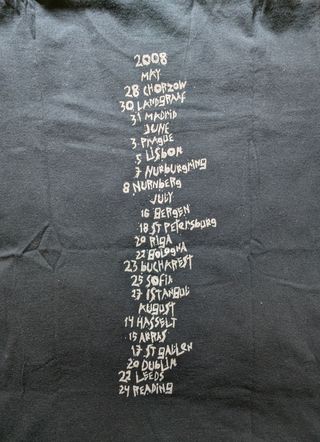 2008
MAY
28 CHORZOW
30 LANDGRAAF
31 MADRID
JUNE
3 PRAGUE
5 LISBON
7 NURBURGRING
8 NURNBERG
JULY
16 BERGEN
18 ST PETERSBURG
20 RIGA
22 BOLOGNA
23 BUCHAREST
25 SOFIA
27 ISTANBUL
AUGUST
14 HASSELT
15 ARRAS
17 ST GALLEN
20 DUBLIN
22 LEEDS
24 READING